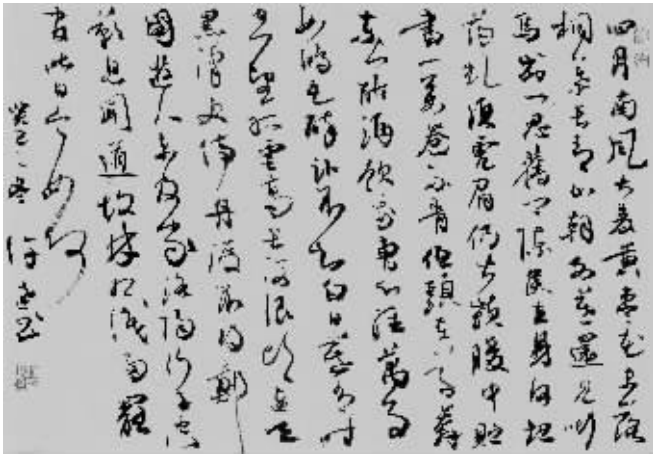 四月南風大麥黃棗花未落
桐葉長青山朝別暮還見嘶
馬出門思舊鄉陳侯立身何坦
蕩虬鬚虎眉仍大顙腹中貯
書一萬卷不肯低頭在草莽
東門酤酒飲我曹心輕萬事
如鴻毛醉臥不知白日暮有時
空望孤雲高長河浪頭連天
黑津吏停舟渡不得鄭
國遊人未及家洛陽行子空
歎息聞道故林相識多罷
官昨日今如何
癸巳冬